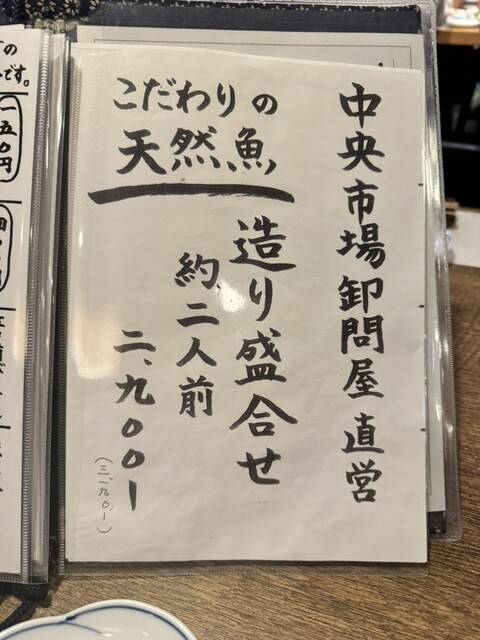 中央市場 卸問屋 直営
こだわりの
天然魚
造り盛合せ
約二人前
二、九〇〇ー
(三、一九〇ー)
一五〇円